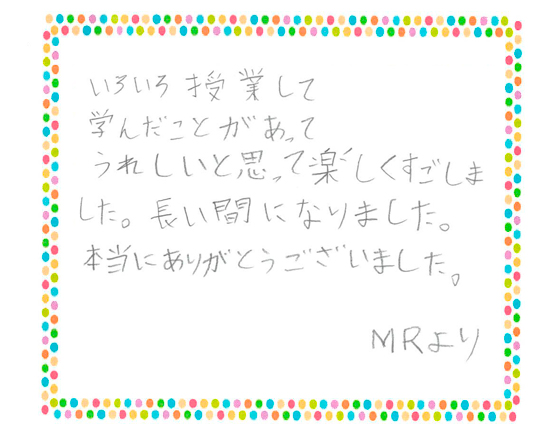 いろいろ授業して
学んだことがあって
うれしいと思って楽しくすごしま
した。長い間になりました。
本当にありがとうございました。
MRより